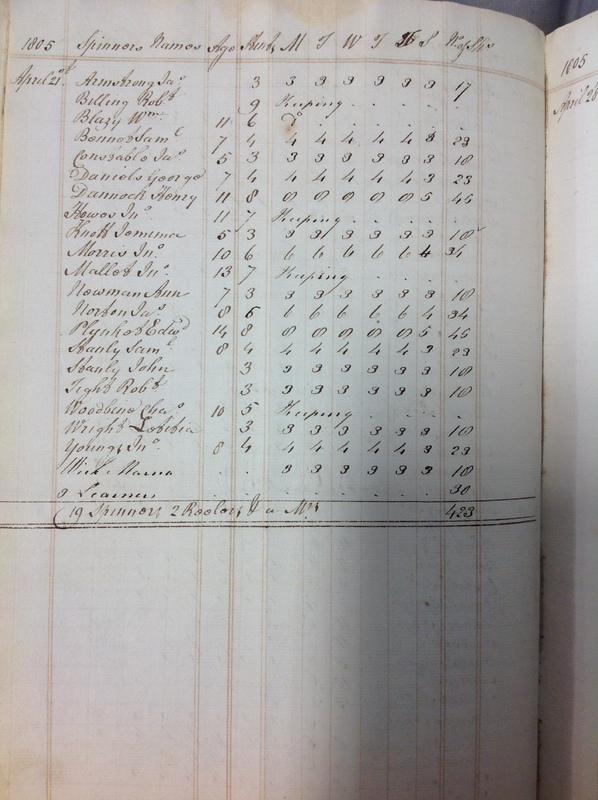 1805 Spinners Names Age Stint M T W T F S No of Sks
April 21st Armstrong Jas 3 3 3 3 3 3 3 17
Billing Robt 9 Keeping
Blazy Wm 11 6 Do
Bennet Saml 7 4 4 4 4 4 4 3 23
Constable Jas 5 3 3 3 3 3 3 3 18
Daniels George 7 4 4 4 4 4 4 3 23
Dannock Henry 11 8 8 8 8 8 8 5 45
Howes Jno 11 7 Keeping
Knott Jemima 5 3 3 3 3 3 3 3 18
Morris Jno 10 6 6 6 6 6 6 4 34
Mallet Jno 13 7 Keeping
Newman Ann 7 3 3 3 3 3 3 3 18
Norton Jas 8 6 6 6 6 6 6 4 34
Plunket Edwd 14 8 8 8 8 8 8 5 45
Stanly Saml 8 4 4 4 4 4 4 3 23
Stanly John 3 3 3 3 3 3 3 18
Tight Robt 3 3 3 3 3 3 3 18
Woodbine Chas 10 5 Keeping
Wright Letitia 3 3 3 3 3 3 3 18
Youngs Jno 8 4 4 4 4 4 4 3 23
3 3 3 3 3 3 18
Learners 30
19 Spinners 2 Reelers & a Mrs 423
1805
April 28